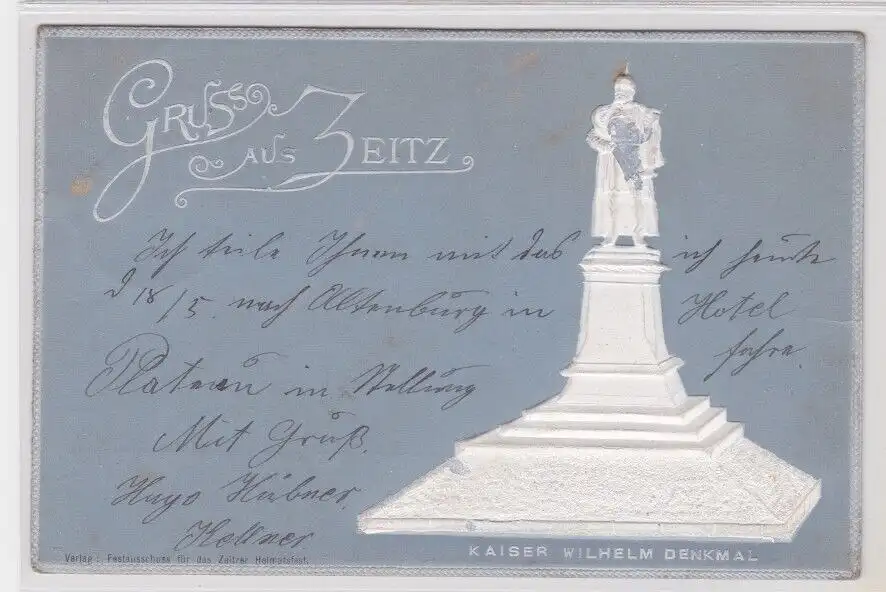 GRUSS
AUS ZEITZ
Ich teile Ihnen mit das ich heute
d 18/5. nach Altenburg in Hotel
fahre
Plateau in Stellung
Mit Gruß.
Hugo Hübner.
Kellner.
Verlag: Festausschuss für das Zeitzer Heimatsfest.
KAISER WILHELM DENKMAL